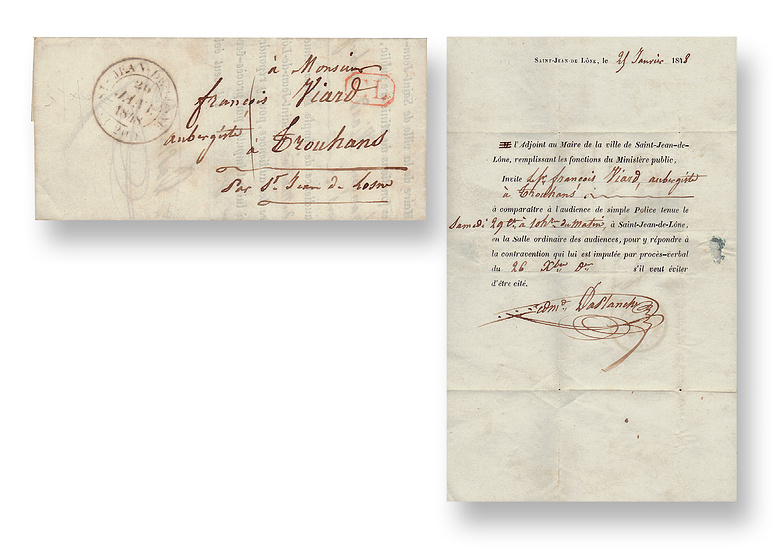 ST-JEAN-DE-LÔNE
26
JANV.
1848
(20)
à Monsieur
françois Viard
CL
aubergiste à Trouhans
Par St. Jean de Losne
SAINT-JEAN-DE LÔNE, le 25 Janvier 1848
l'Adjoint au Maire de la ville de Saint-Jean-de-
Lône, remplissant les fonctions du Ministère public,
Invite le Sr. françois Viard, aubergiste
à Trouhans
à comparaître à l'audience de simple Police tenue le
Samedi 29 ct. à 10 hr. du Matin, à Saint-Jean-de-Lône,
en la Salle ordinaire des audiences, pour y répondre à
la contravention qui lui est imputée par procès-verbal
du 26 Xbre Der s'il veut éviter
d'être cité.